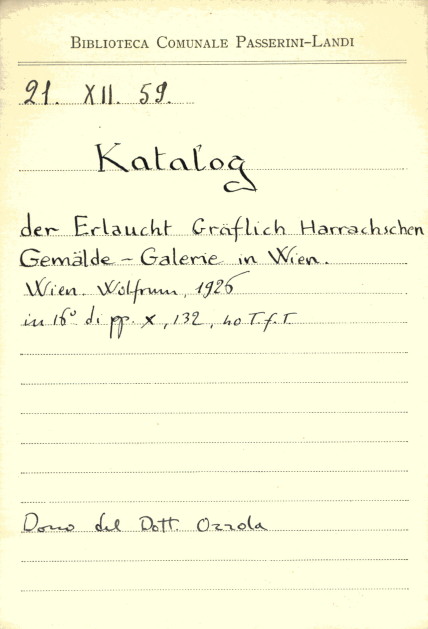 BIBLIOTECA COMUNALE PASSERINI-LANDI
21. XII. 59.
Katalog
der Erlaucht Gräflich Harrachschen
Gemälde - Galerie in Wien.
Wien. Wolfrum, 1926
in 16° di pp. X, 132, 40 T.f.T.
Dono del Dott. Ozzola